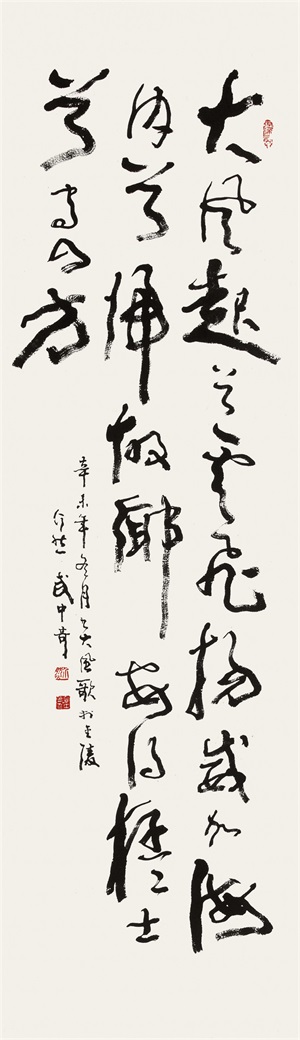 大風起兮雲飛揚威加海
內兮歸故鄉安得猛士
兮守四方
辛未年冬月書大風歌於金陵
武中奇